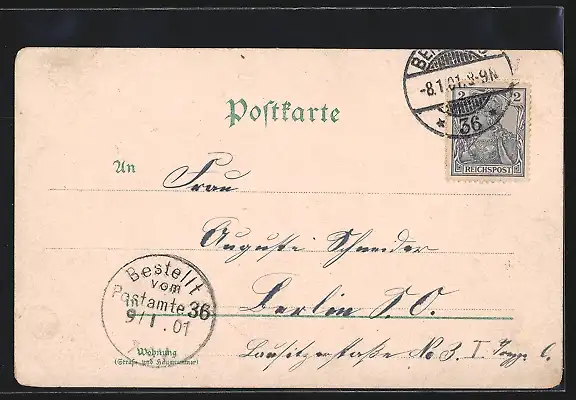 -8.1.01.8-9N
36
2 2
REICHSPOST
Postkarte
An Frau
Auguste Schneider
in Berlin S.O.
Wohnung
(Straße und Hausnummer)
Lausitzerstraße No 3. I
Bestellt
vom
Postamte 36
9/1.01